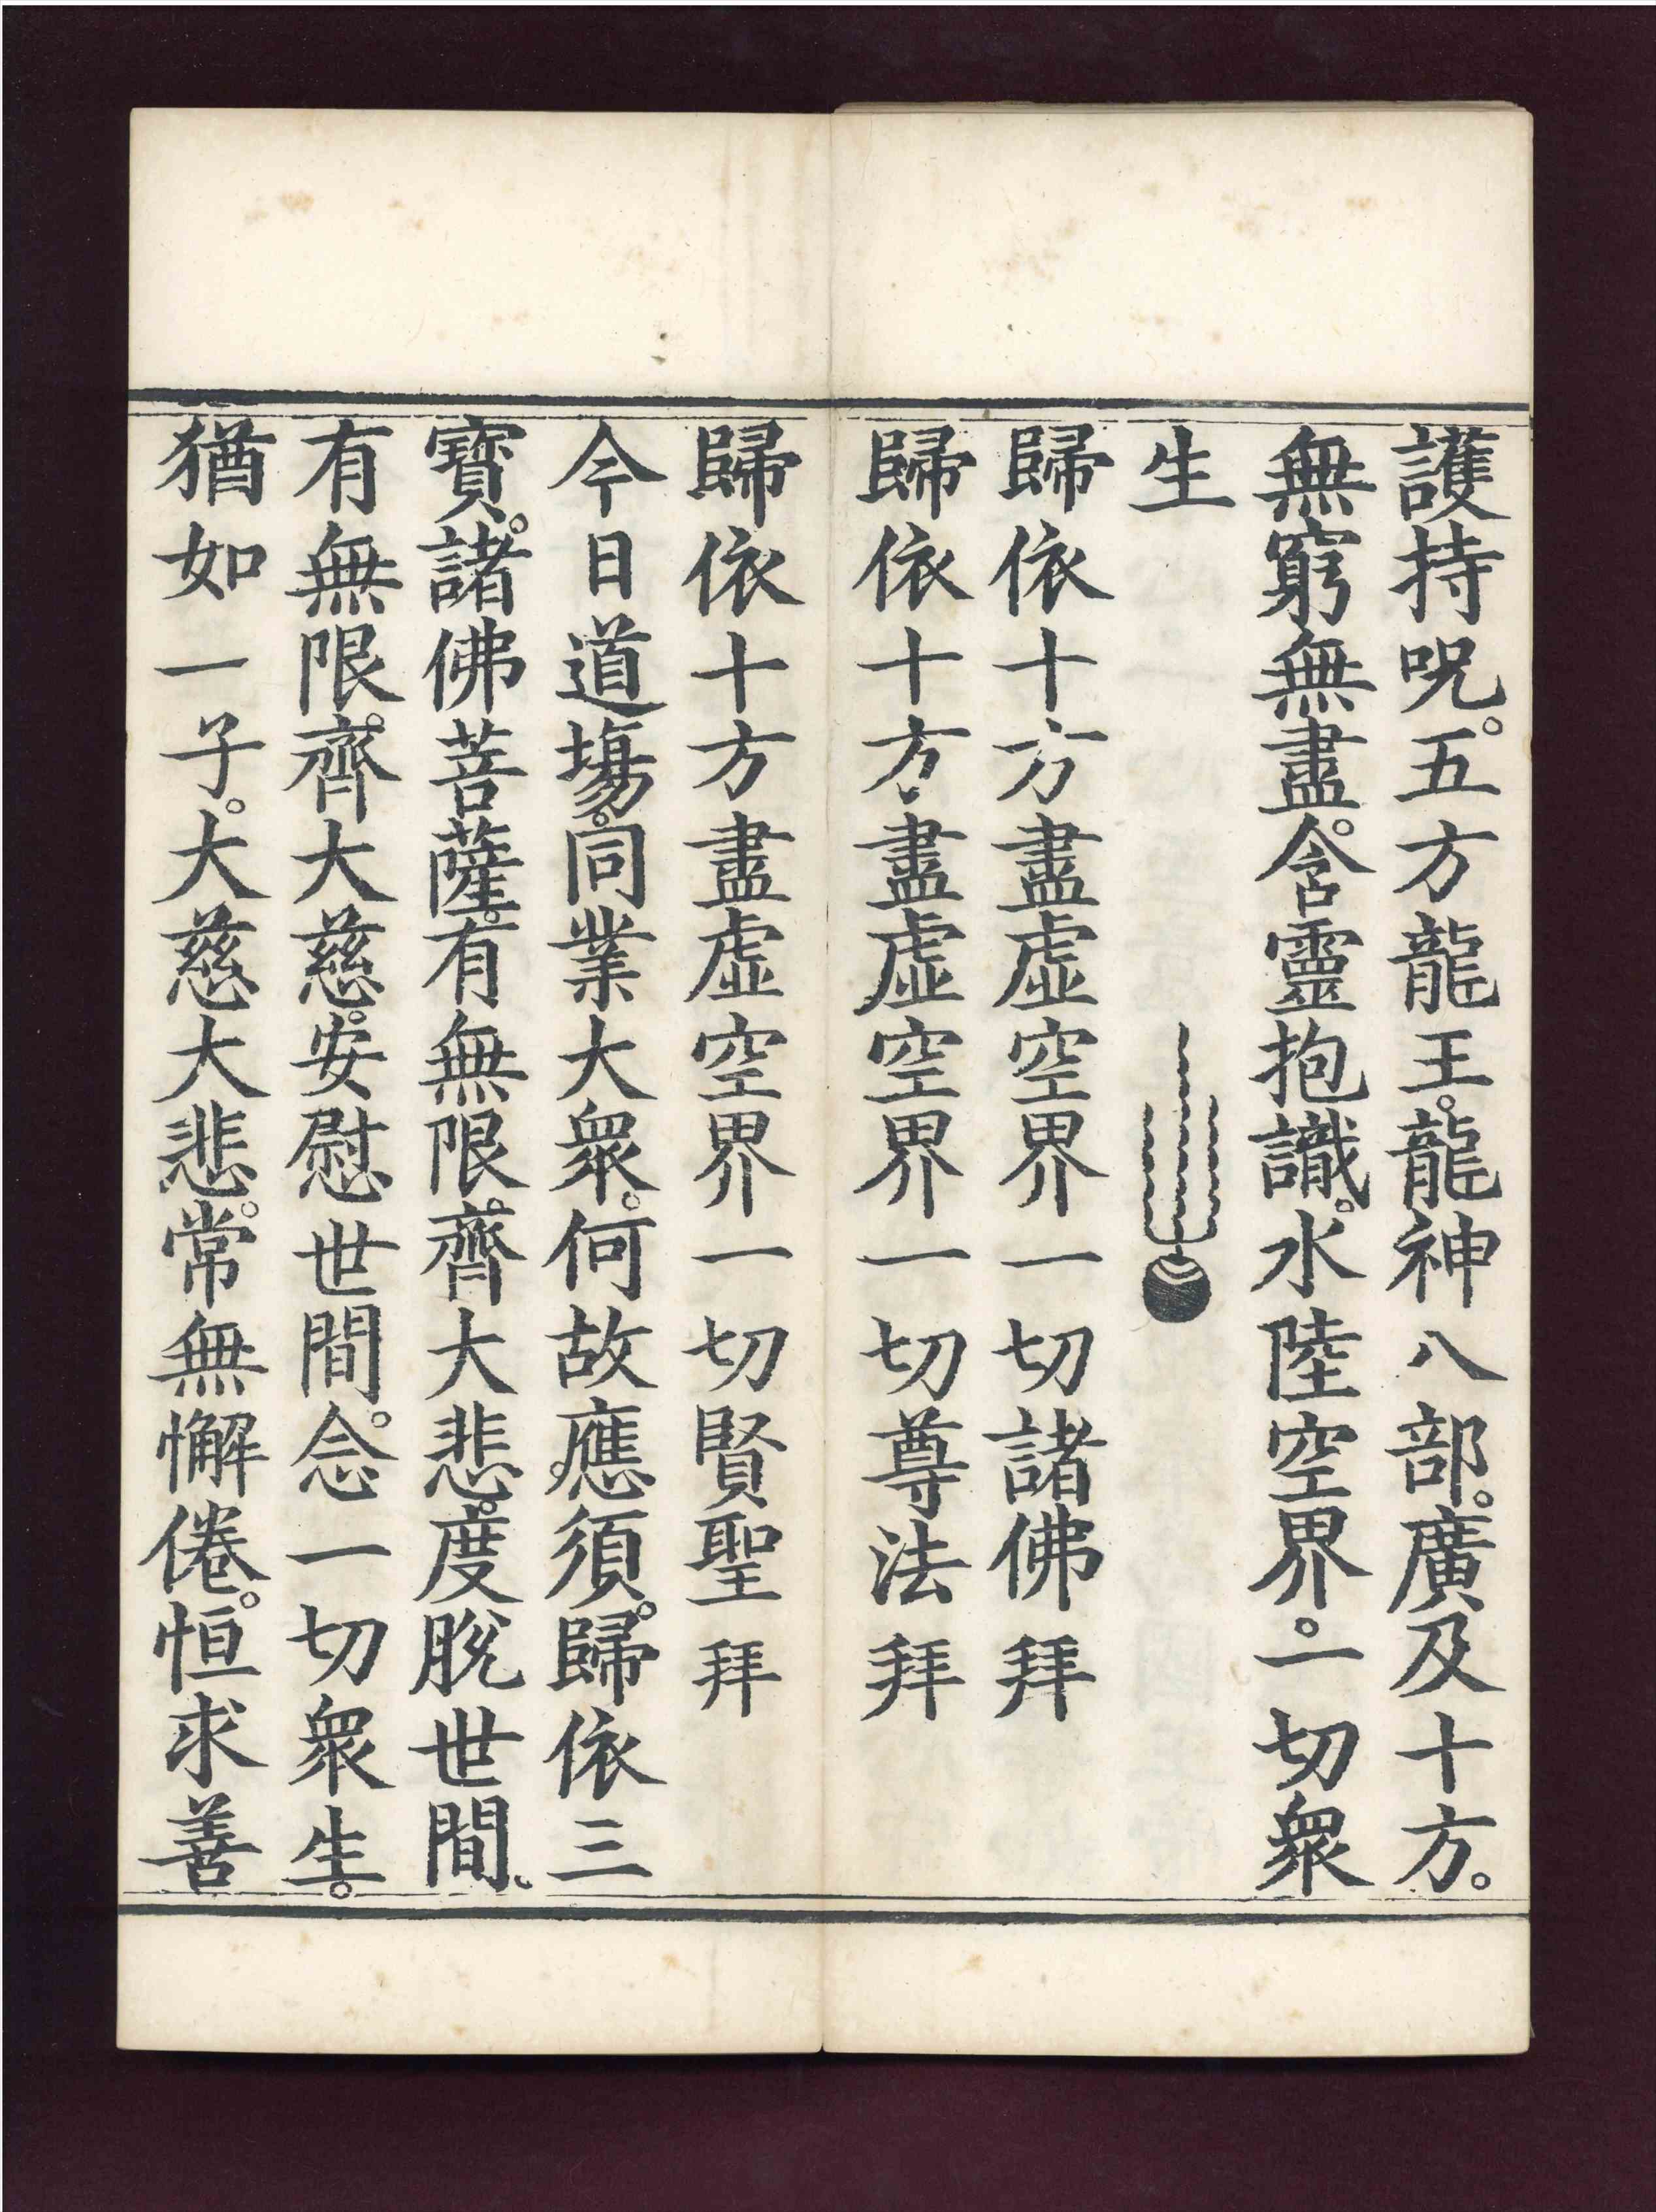 護持呪。五方龍王。龍神八部。廣及十方。
無窮無盡。含靈抱識。水陸空界。一切衆
生
歸依十方盡虛空界一切諸佛 拜
歸依十方盡虛空界一切尊法 拜
歸依十方盡虛空界一切賢聖 拜
今日道場。同業大衆。何故應須。歸依三
寶。諸佛菩薩。有無限。齊大悲。度脫世間、
有無限。齊大慈。安慰世間。念一切衆生。
猶如一子。大慈大悲。常無懈倦。恒求善